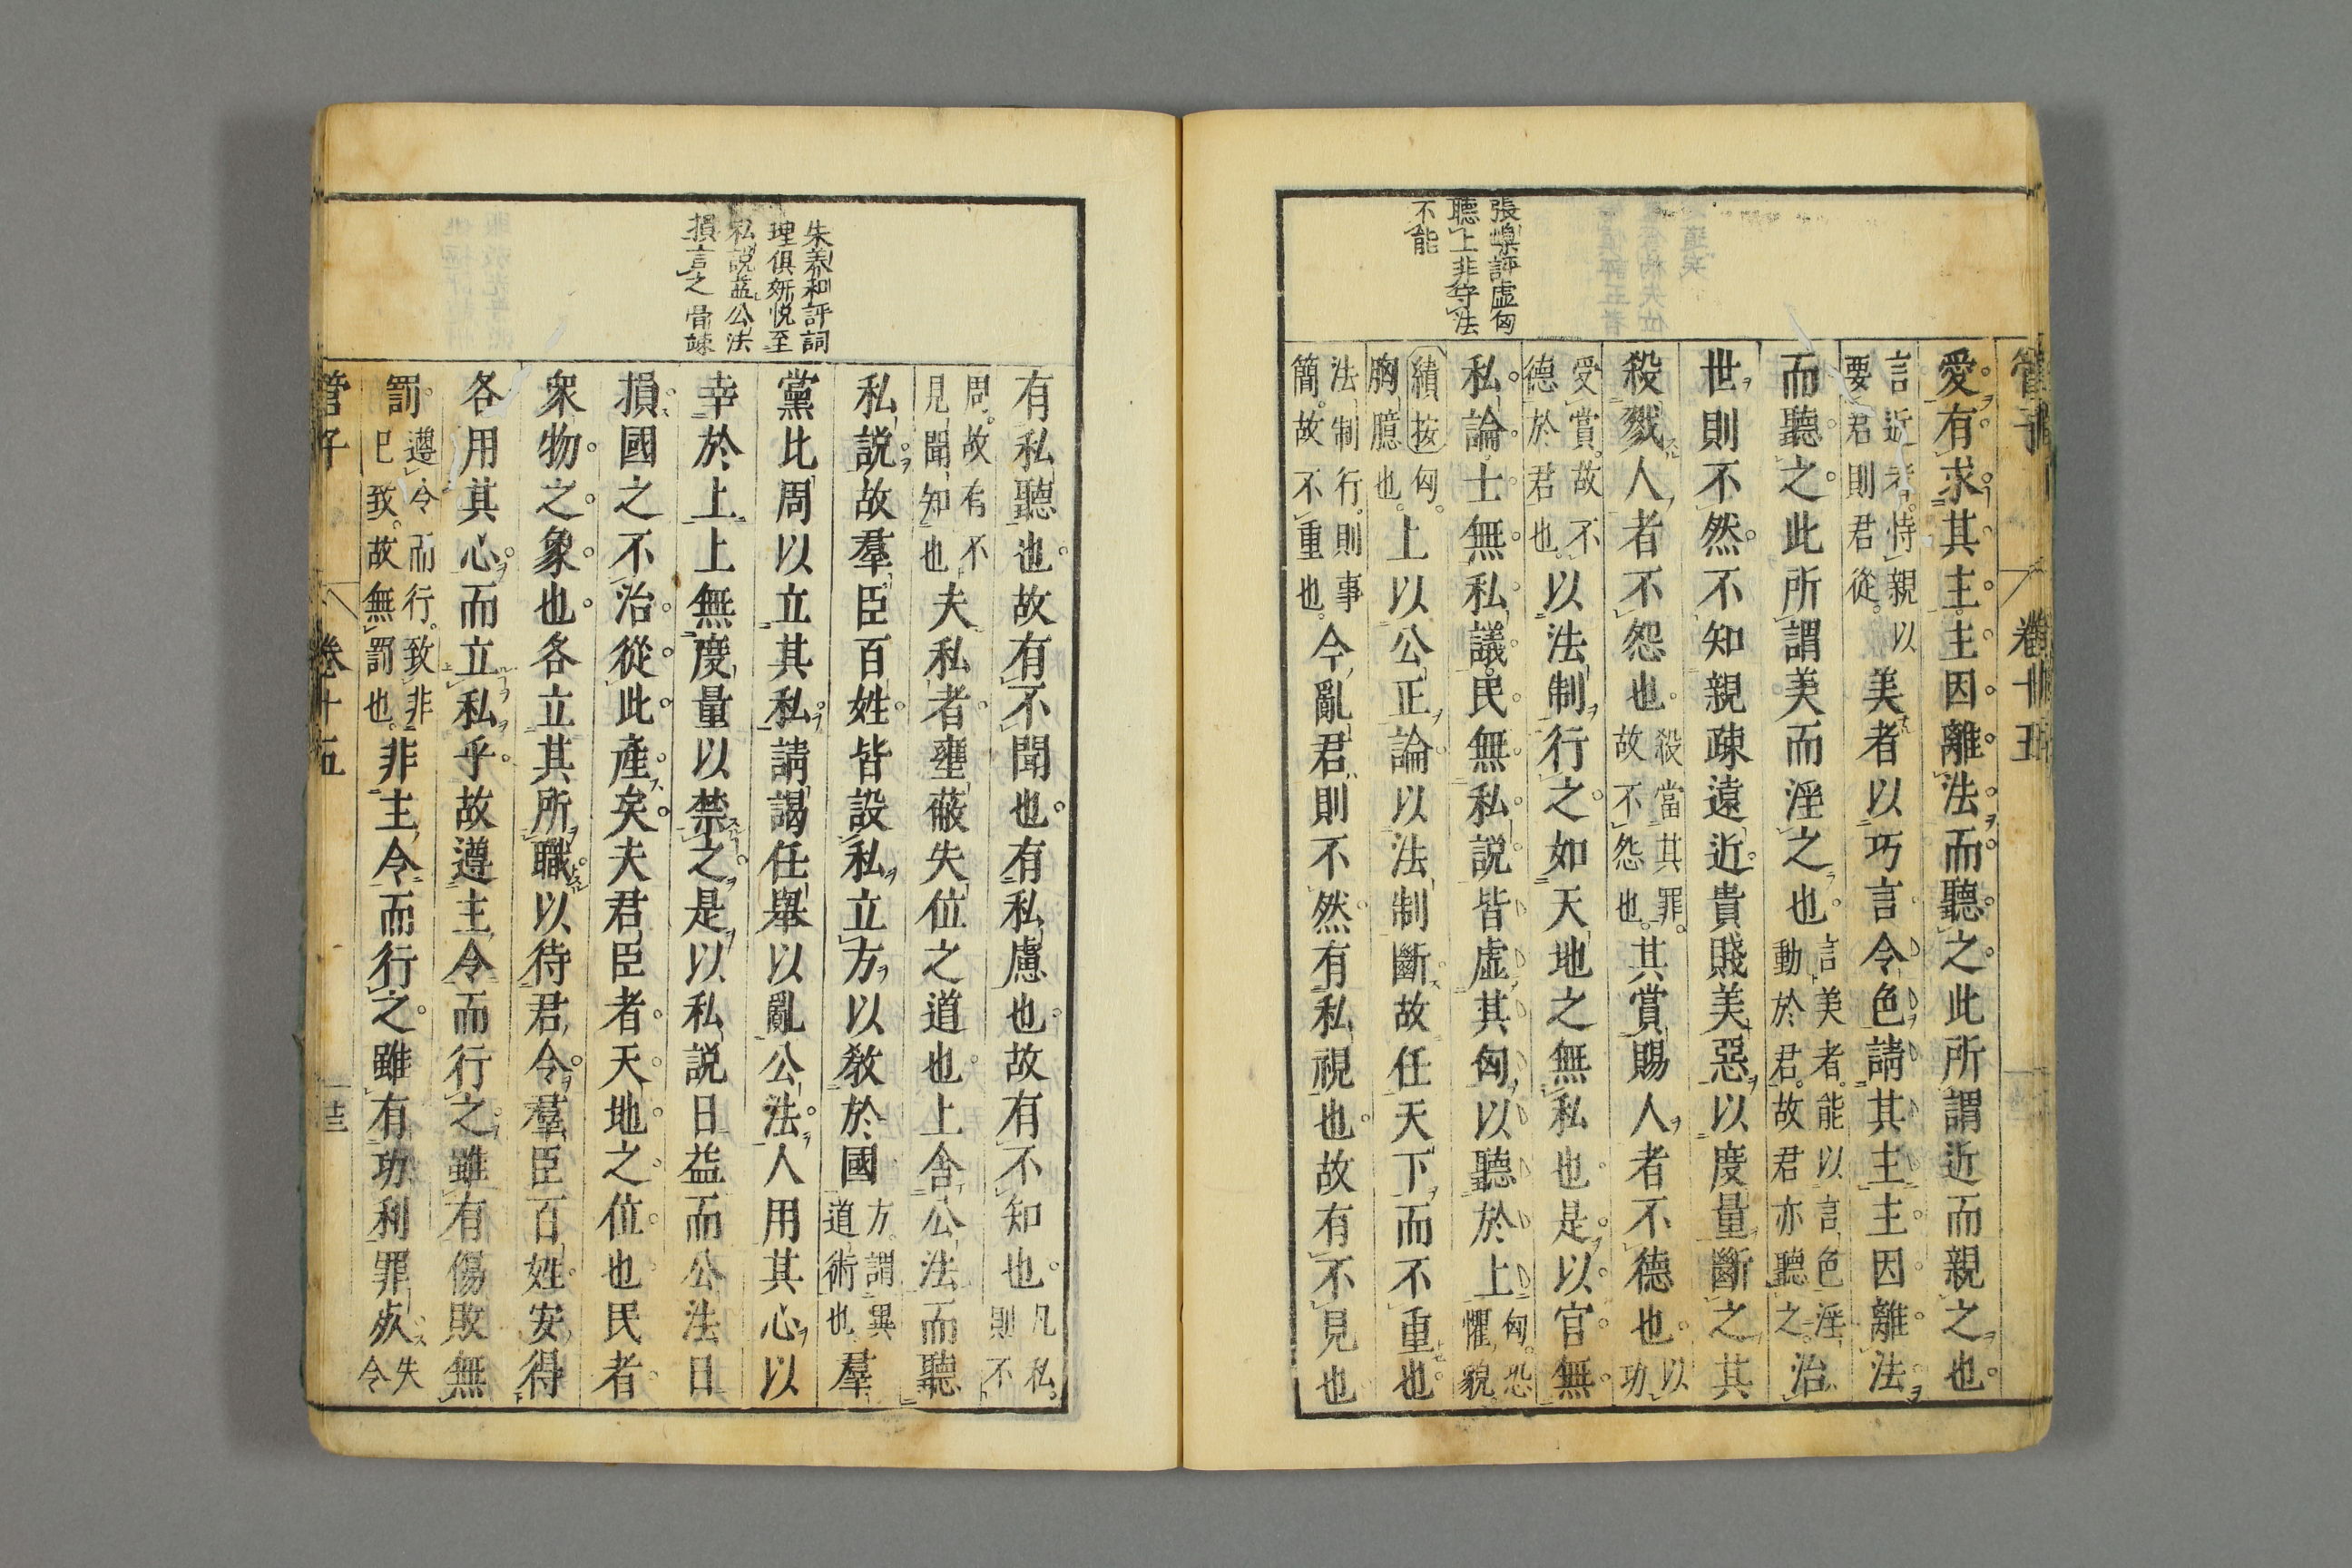 管子
卷十五
張榜評虛匈
聽上非守法
不能
愛有求其主主因離法而聽之此所謂近而親之也
言近者恃親以要君則君從美者以巧言令色請其主主因離法
而聽之此所謂美而淫之也言美者能以言色淫動於君故君亦聽之治
世則不然不知親疎遠近貴賤美惡以度量斷之其
殺戮人者不怨也殺當其罪故不怨也其賞賜人者不德也以功
受賞故不德於君也以法制行之如天地之無私也是以官無
私論士無私議民無私説皆虛其匈以聽於上匈恐懼貌
續按匈胸臆也上以公正論以法制斷故任天下而不重也
法制行則事簡故不重也今亂君則不然有私視也故有不見也
朱養和評詞
理俱妍悦至
私説益公法
損言之骨竦
有私聽也故有不聞也有私慮也故有不知也凡私則不
周故有不見聞知也夫私者壅蔽失位之道也上舍公法而聽
私説故羣臣百姓皆設私立方以教於國方謂異道術也羣
黨比周以立其私請謁任舉以亂公法人用其心以
幸於上上無度量以禁之是以私説日益而公法日
損國之不治從此產矣夫君臣者天地之位也民者
衆物之象也各立其所職以待君令羣臣百姓安得
各用其心而立私乎故遵主令而行之雖有傷敗無
罰遵令而行致非已致故無罰也非主令而行之雖有功利罪死失令
管子
卷十五